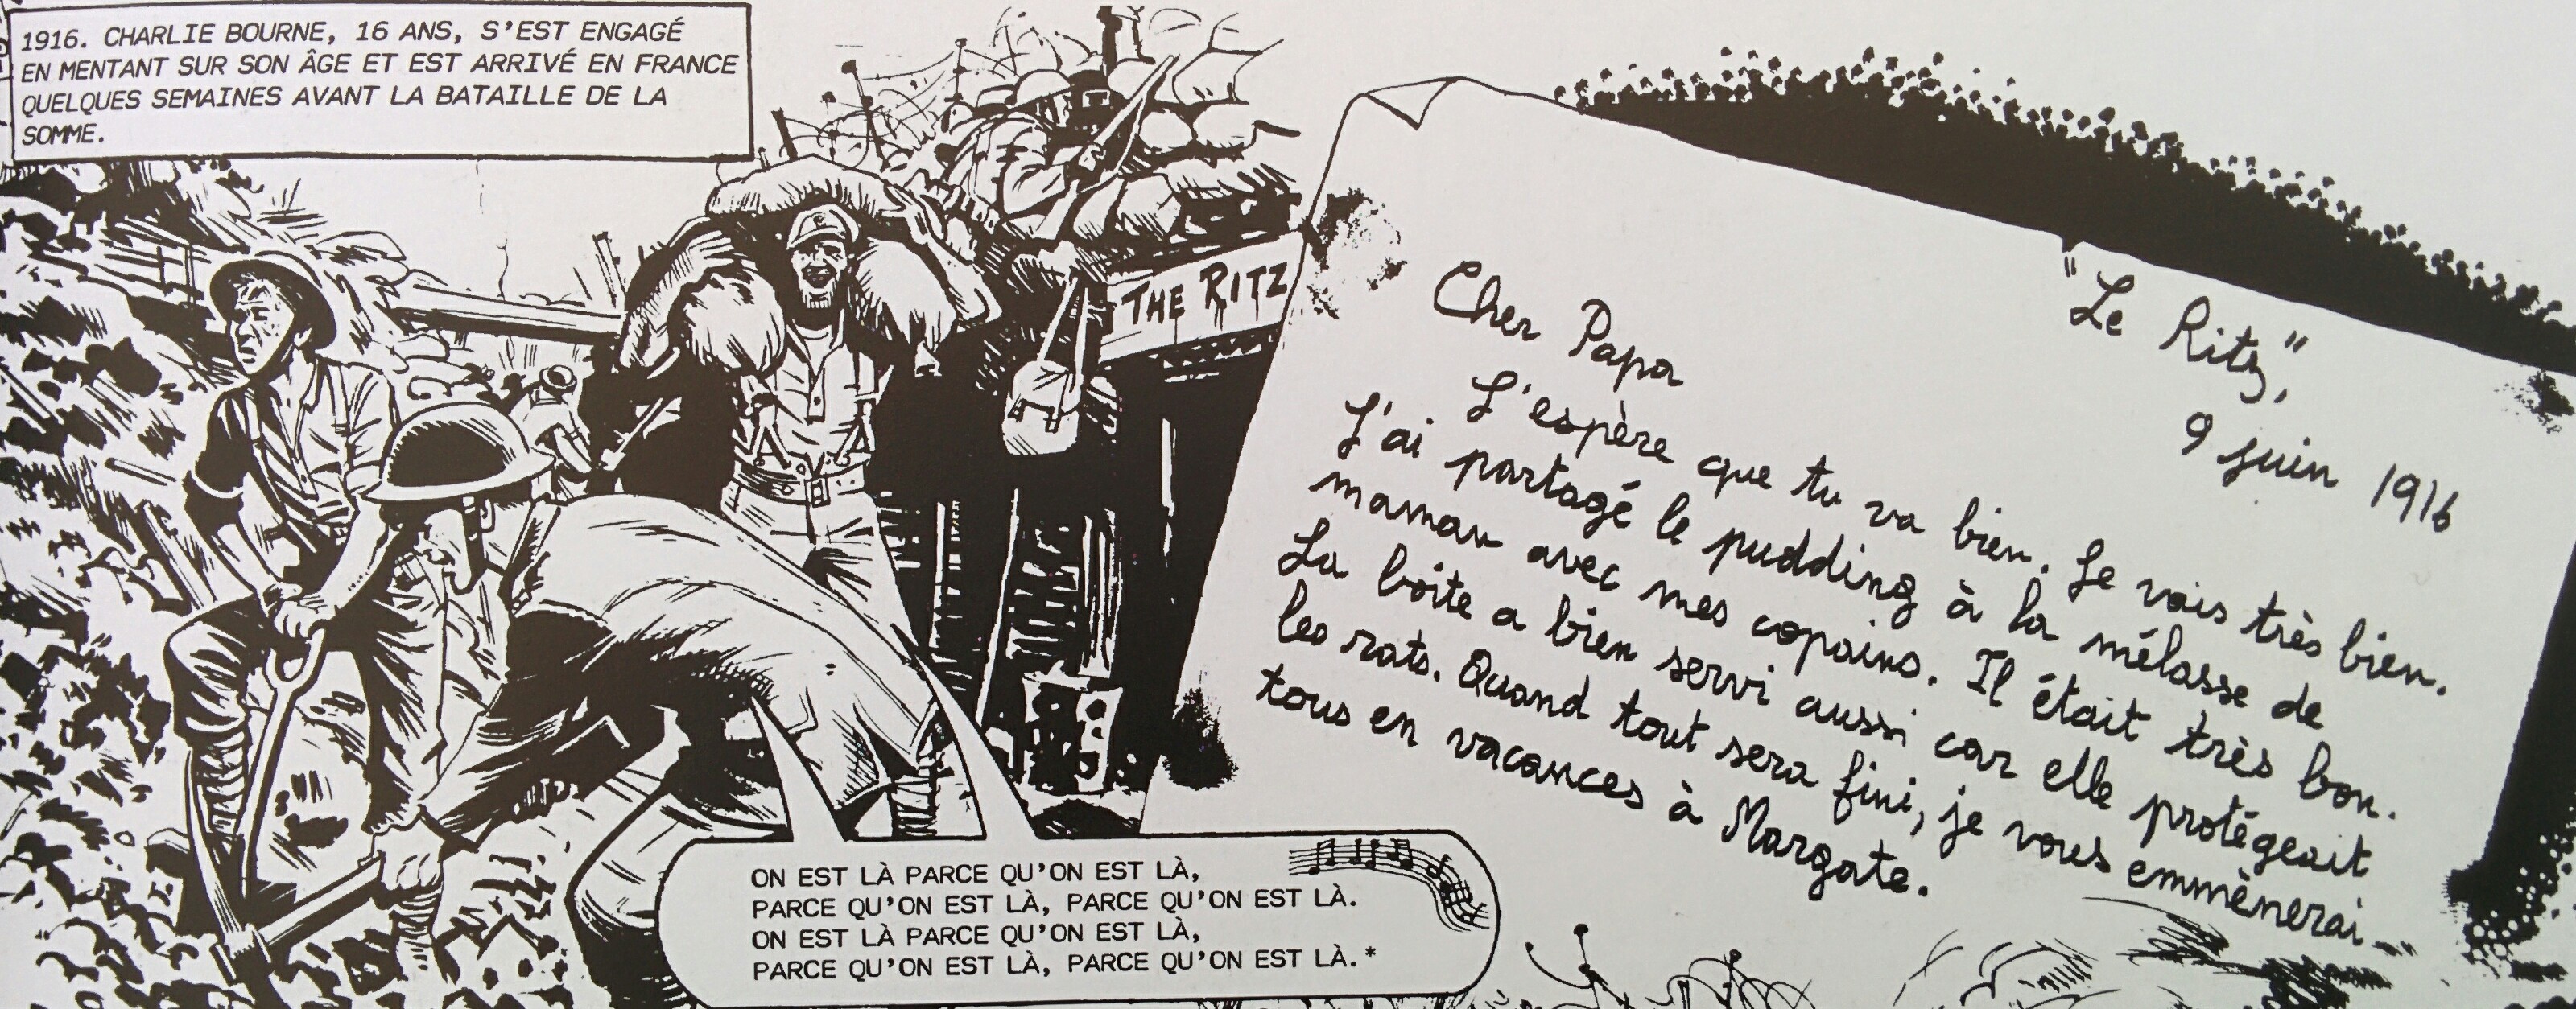 1916. CHARLIE BOURNE, 16 ANS, S'EST ENGAGÉ
EN MENTANT SUR SON ÂGE ET EST ARRIVÉ EN FRANCE
QUELQUES SEMAINES AVANT LA BATAILLE DE LA
SOMME.
THE RITZ
"Le Ritz,"
9 juin 1916
Cher Papa
J'espère que tu va bien. Je vais très bien.
J'ai partagé le pudding à la mélasse de
maman avec mes copains. Il était très bon.
La boite a bien servi aussi car elle protégeait
les rats. Quand tout sera fini, je vous emmènerai
tous en vacances à Margate.
ON EST LÀ PARCE QU'ON EST LÀ,
PARCE QU'ON EST LÀ, PARCE QU'ON EST LÀ.
ON EST LÀ PARCE QU'ON EST LÀ,
PARCE QU'ON EST LÀ, PARCE QU'ON EST LÀ.*